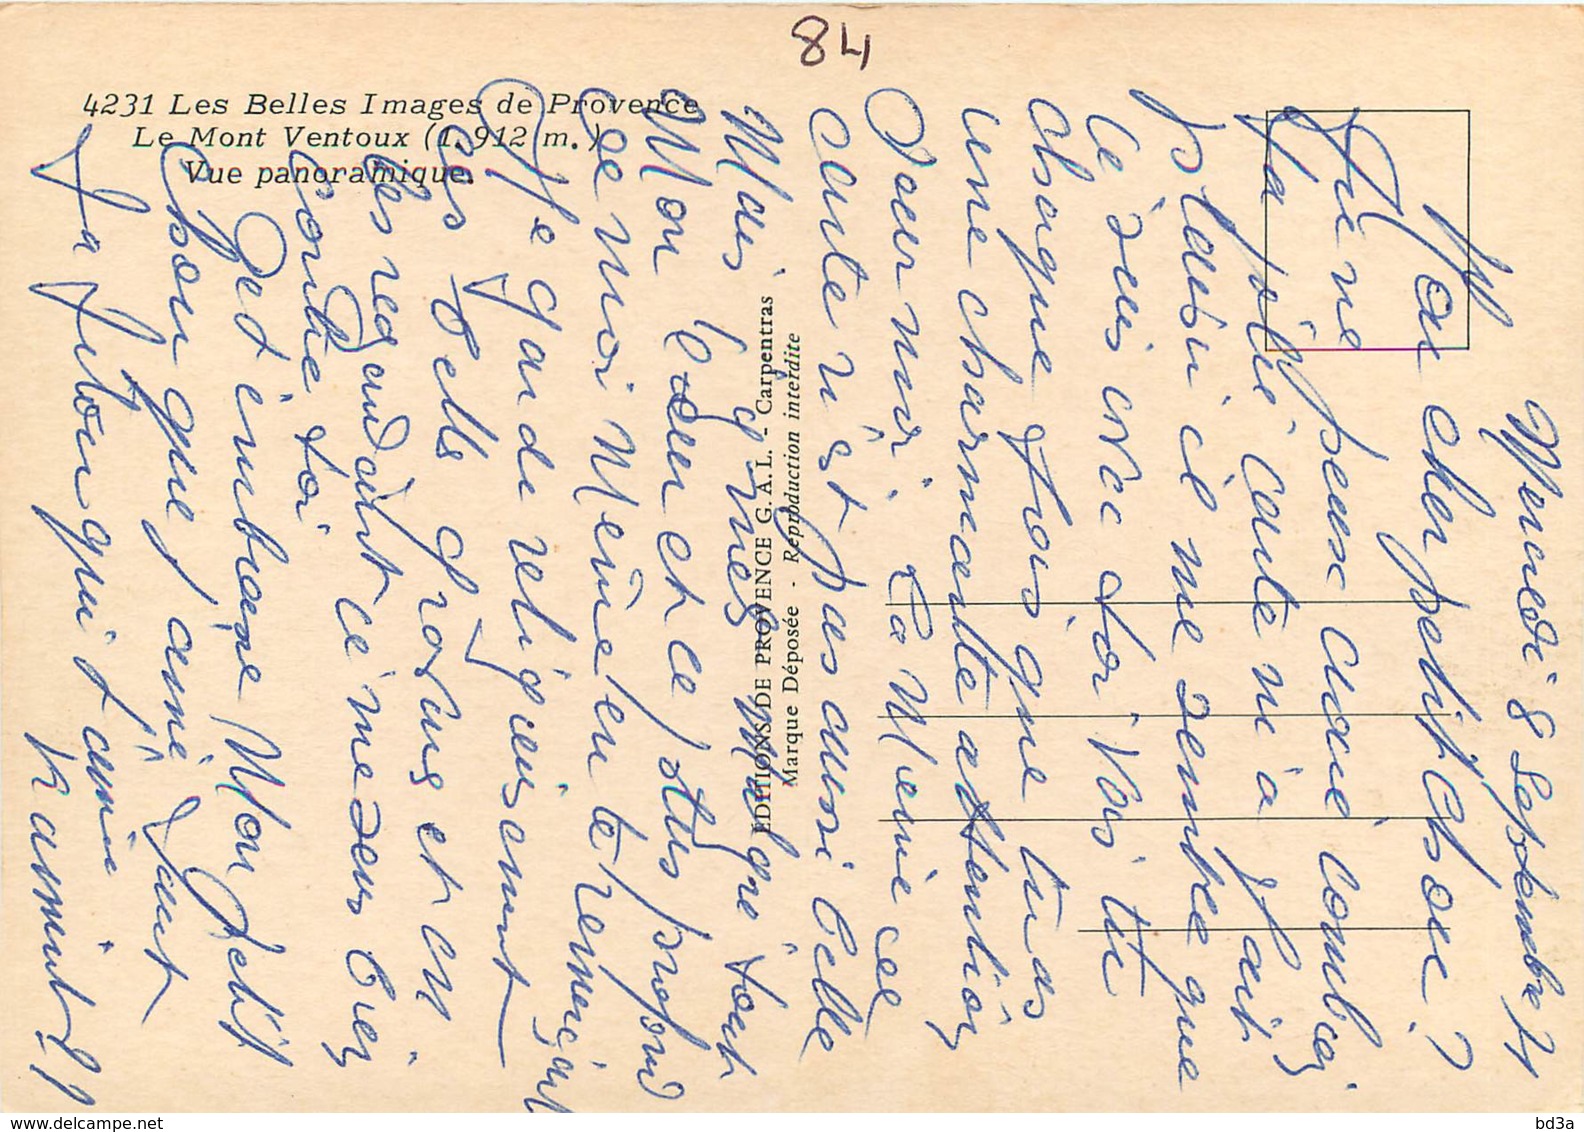 84
4231 Les Belles Images de Provence
Le Mont Ventoux (1.912 m.)
Vue panoramique.
EDITIONS DE PROVENCE G.A.L. - Carpentras
Marque Déposée - Reproduction interdite
Mercredi 8 Septembre 71
Mon cher petit Chou ?
Tu ne peux avoir combien
Ta jolie carte m'a fait
plaisir il me semble que
je suis avec toi vois tu
chaque fois que tu as
une charmante attention
pour moi. La Mienne de
carte n'est pas aussi belle
Mais
Mon Coeur est le plus profond
de moi Même en te remerciant
Je garde religieusement
ces belles et en
les regardant je me sens bien
contre toi
Je t'embrasse Mon Petit
Chou que j'aime tant
Ta qui t'aime